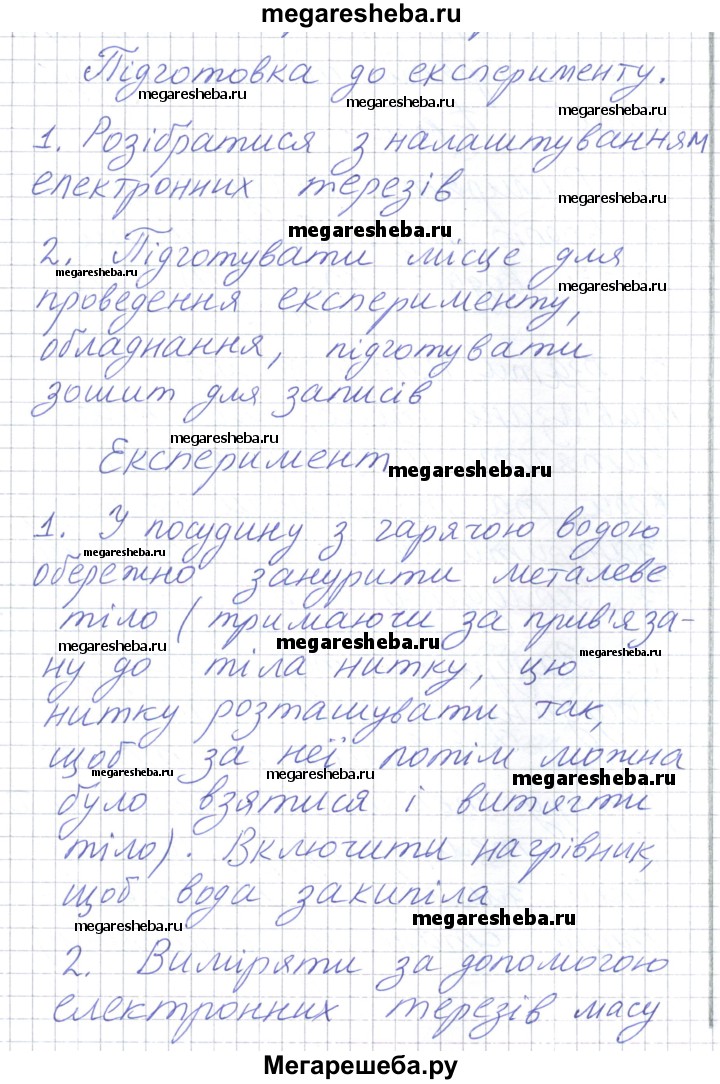 megaresheba.ru
Підготовка до експерименту.
megaresheba.ru megaresheba.ru megaresheba.ru
1. Розібратися з налаштуванням
електронних терезів
megaresheba.ru
megaresheba.ru
2. Підготувати місце для
megaresheba.ru
проведення експерименту,
megaresheba.ru
обладнання, підготувати
зошит для записів
megaresheba.ru
Експеримент
megaresheba.ru
1. У посудину з гарячою водою
megaresheba.ru
обережно занурити металеве
тіло (тримаючи за прив'яза-
megaresheba.ru megaresheba.ru megaresheba.ru
ну до тіла нитку, цю
нитку розташувати так,
щоб за неї потім можна
megaresheba.ru megaresheba.ru megaresheba.ru
було взятися і витягти
тіло). Включити нагрівник,
щоб вода закипіла
megaresheba.ru megaresheba.ru megaresheba.ru
2. Виміряти за допомогою
електронних терезів масу
Мегарешеба.ру